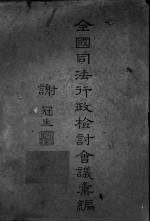 全國司法行政檢討會議彙編
謝冠生